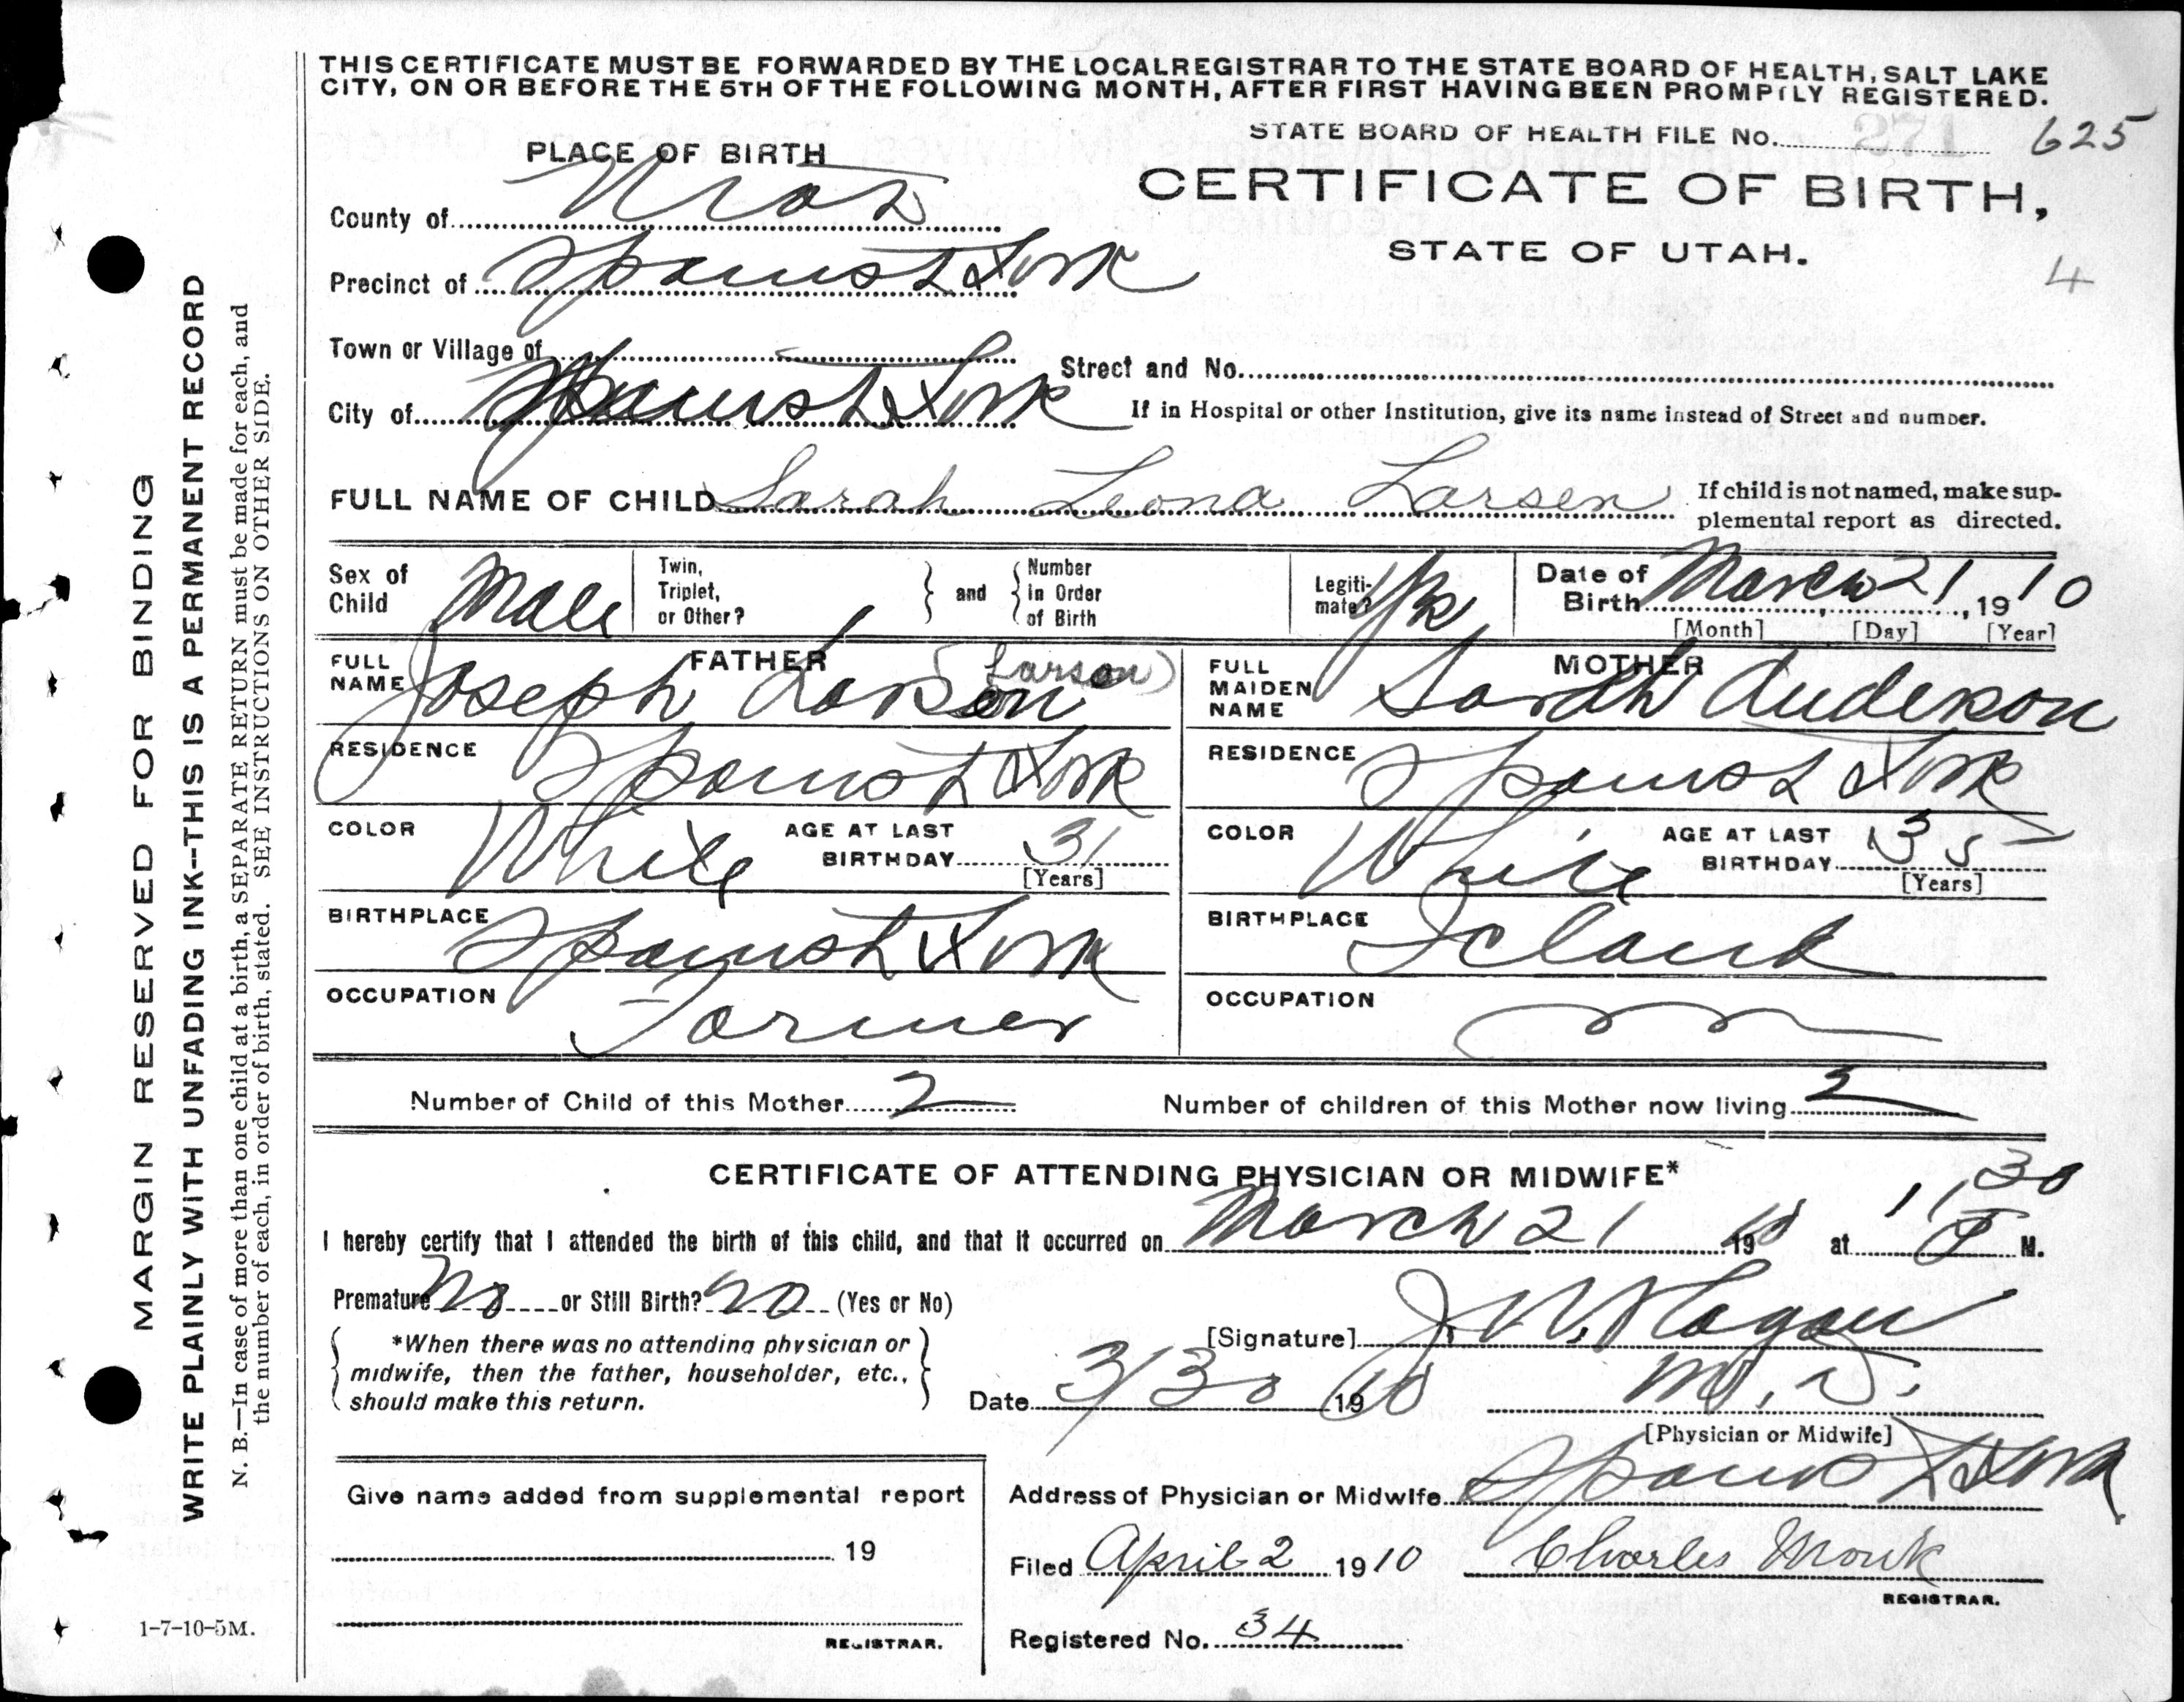 THIS CERTIFICATE MUST BE FORWARDED BY THE LOCAL REGISTRAR TO THE STATE BOARD OF HEALTH, SALT LAKE
CITY, ON OR BEFORE THE 5TH OF THE FOLLOWING MONTH, AFTER FIRST HAVING BEEN PROMPTLY REGISTERED.
STATE BOARD OF HEALTH FILE No. 271 625
PLACE OF BIRTH
CERTIFICATE OF BIRTH,
STATE OF UTAH.
4
County of Utah
Precinct of Spanish Fork
Town or Village of
Street and No.
City of Spanish Fork
If in Hospital or other Institution, give its name instead of Street and number.
FULL NAME OF CHILD Sarah Leona Larsen
If child is not named, make sup-
plemental report as directed.
Sex of Child Male
Twin, Triplet, or Other?
and
Number In Order of Birth
Legiti-mate?
Date of Birth March 21, 1910
[Month] [Day] [Year]
FATHER
FULL NAME Joseph Larson (Larson)
MOTHER
FULL MAIDEN NAME Sarah Anderson
RESIDENCE Spanish Fork
RESIDENCE Spanish Fork
COLOR White AGE AT LAST BIRTHDAY 31 [Years]
COLOR White AGE AT LAST BIRTHDAY 35 [Years]
BIRTHPLACE Spanish Fork
BIRTHPLACE Iceland
OCCUPATION Farmer
OCCUPATION
Number of Child of this Mother 2
Number of children of this Mother now living 2
CERTIFICATE OF ATTENDING PHYSICIAN OR MIDWIFE*
I hereby certify that I attended the birth of this child, and that it occurred on March 21 1910 at 11 30 P M.
Premature No or Still Birth? no (Yes or No)
*When there was no attending physician or
midwife, then the father, householder, etc.,
should make this return.
[Signature] J W Hagan
Date 3/30 1910 M. D.
[Physician or Midwife]
Give name added from supplemental report
19
REGISTRAR.
Address of Physician or Midwife Spanish Fork
Filed April 2 1910 Charles Monk
REGISTRAR.
Registered No. 34
MARGIN RESERVED FOR BINDING
WRITE PLAINLY WITH UNFADING INK--THIS IS A PERMANENT RECORD
N. B.—In case of more than one child at a birth, a SEPARATE RETURN must be made for each, and
the number of each, in order of birth, stated. SEE INSTRUCTIONS ON OTHER SIDE.
1-7-10-5M.